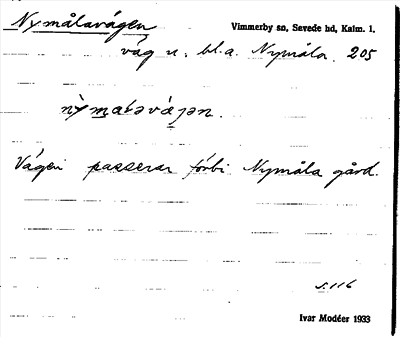 Nymålavägen
Vimmerby sn, Sevede hd, Kalm. l.
väg u. bl.a. Nymåla. 205
Vägen passerar förbi Nymåla gård.
s. 116
Ivar Modéer 1933